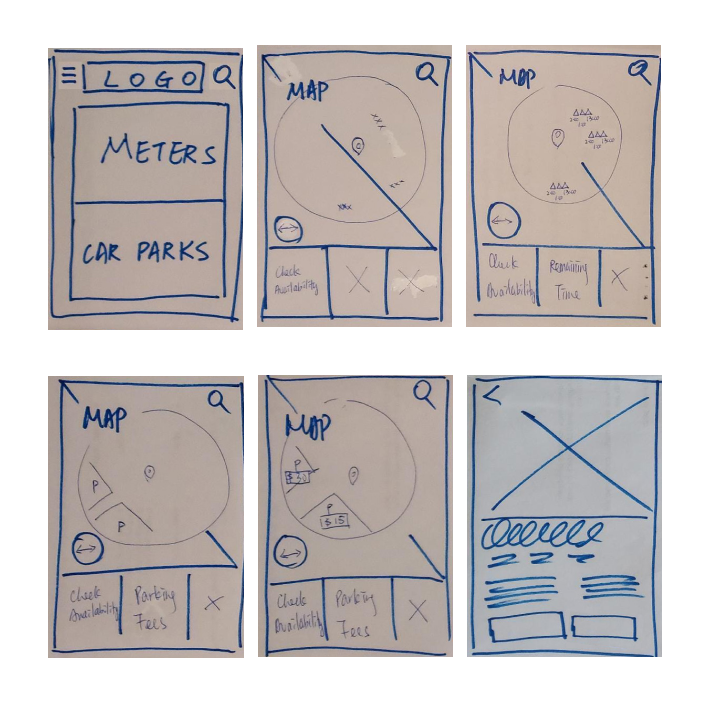 LOGO
METERS
CAR PARKS
MAP
xxx
xxx
Check
Availability
X
X
MAP
250 1300
250 1300
Check
Availability
Remaining
Time
X
MAP
P
P
Check
Availability
Parking
Fees
X
MAP
P
$30
P
$15
Check
Availability
Parking
Fees
X